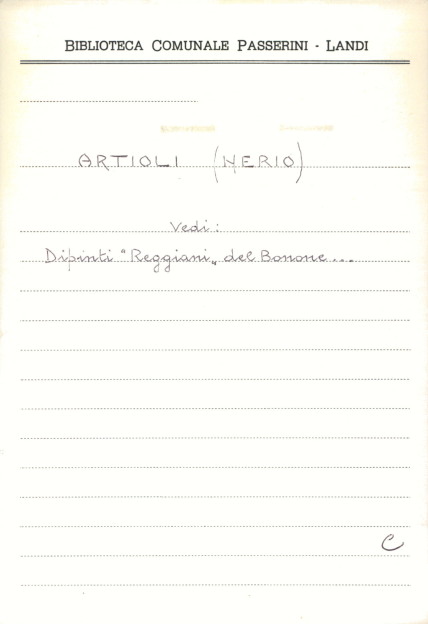 BIBLIOTECA COMUNALE PASSERINI - LANDI
ARTIOLI (NERIO)
Vedi:
Dipinti "Reggiani„ del Bonone...
C